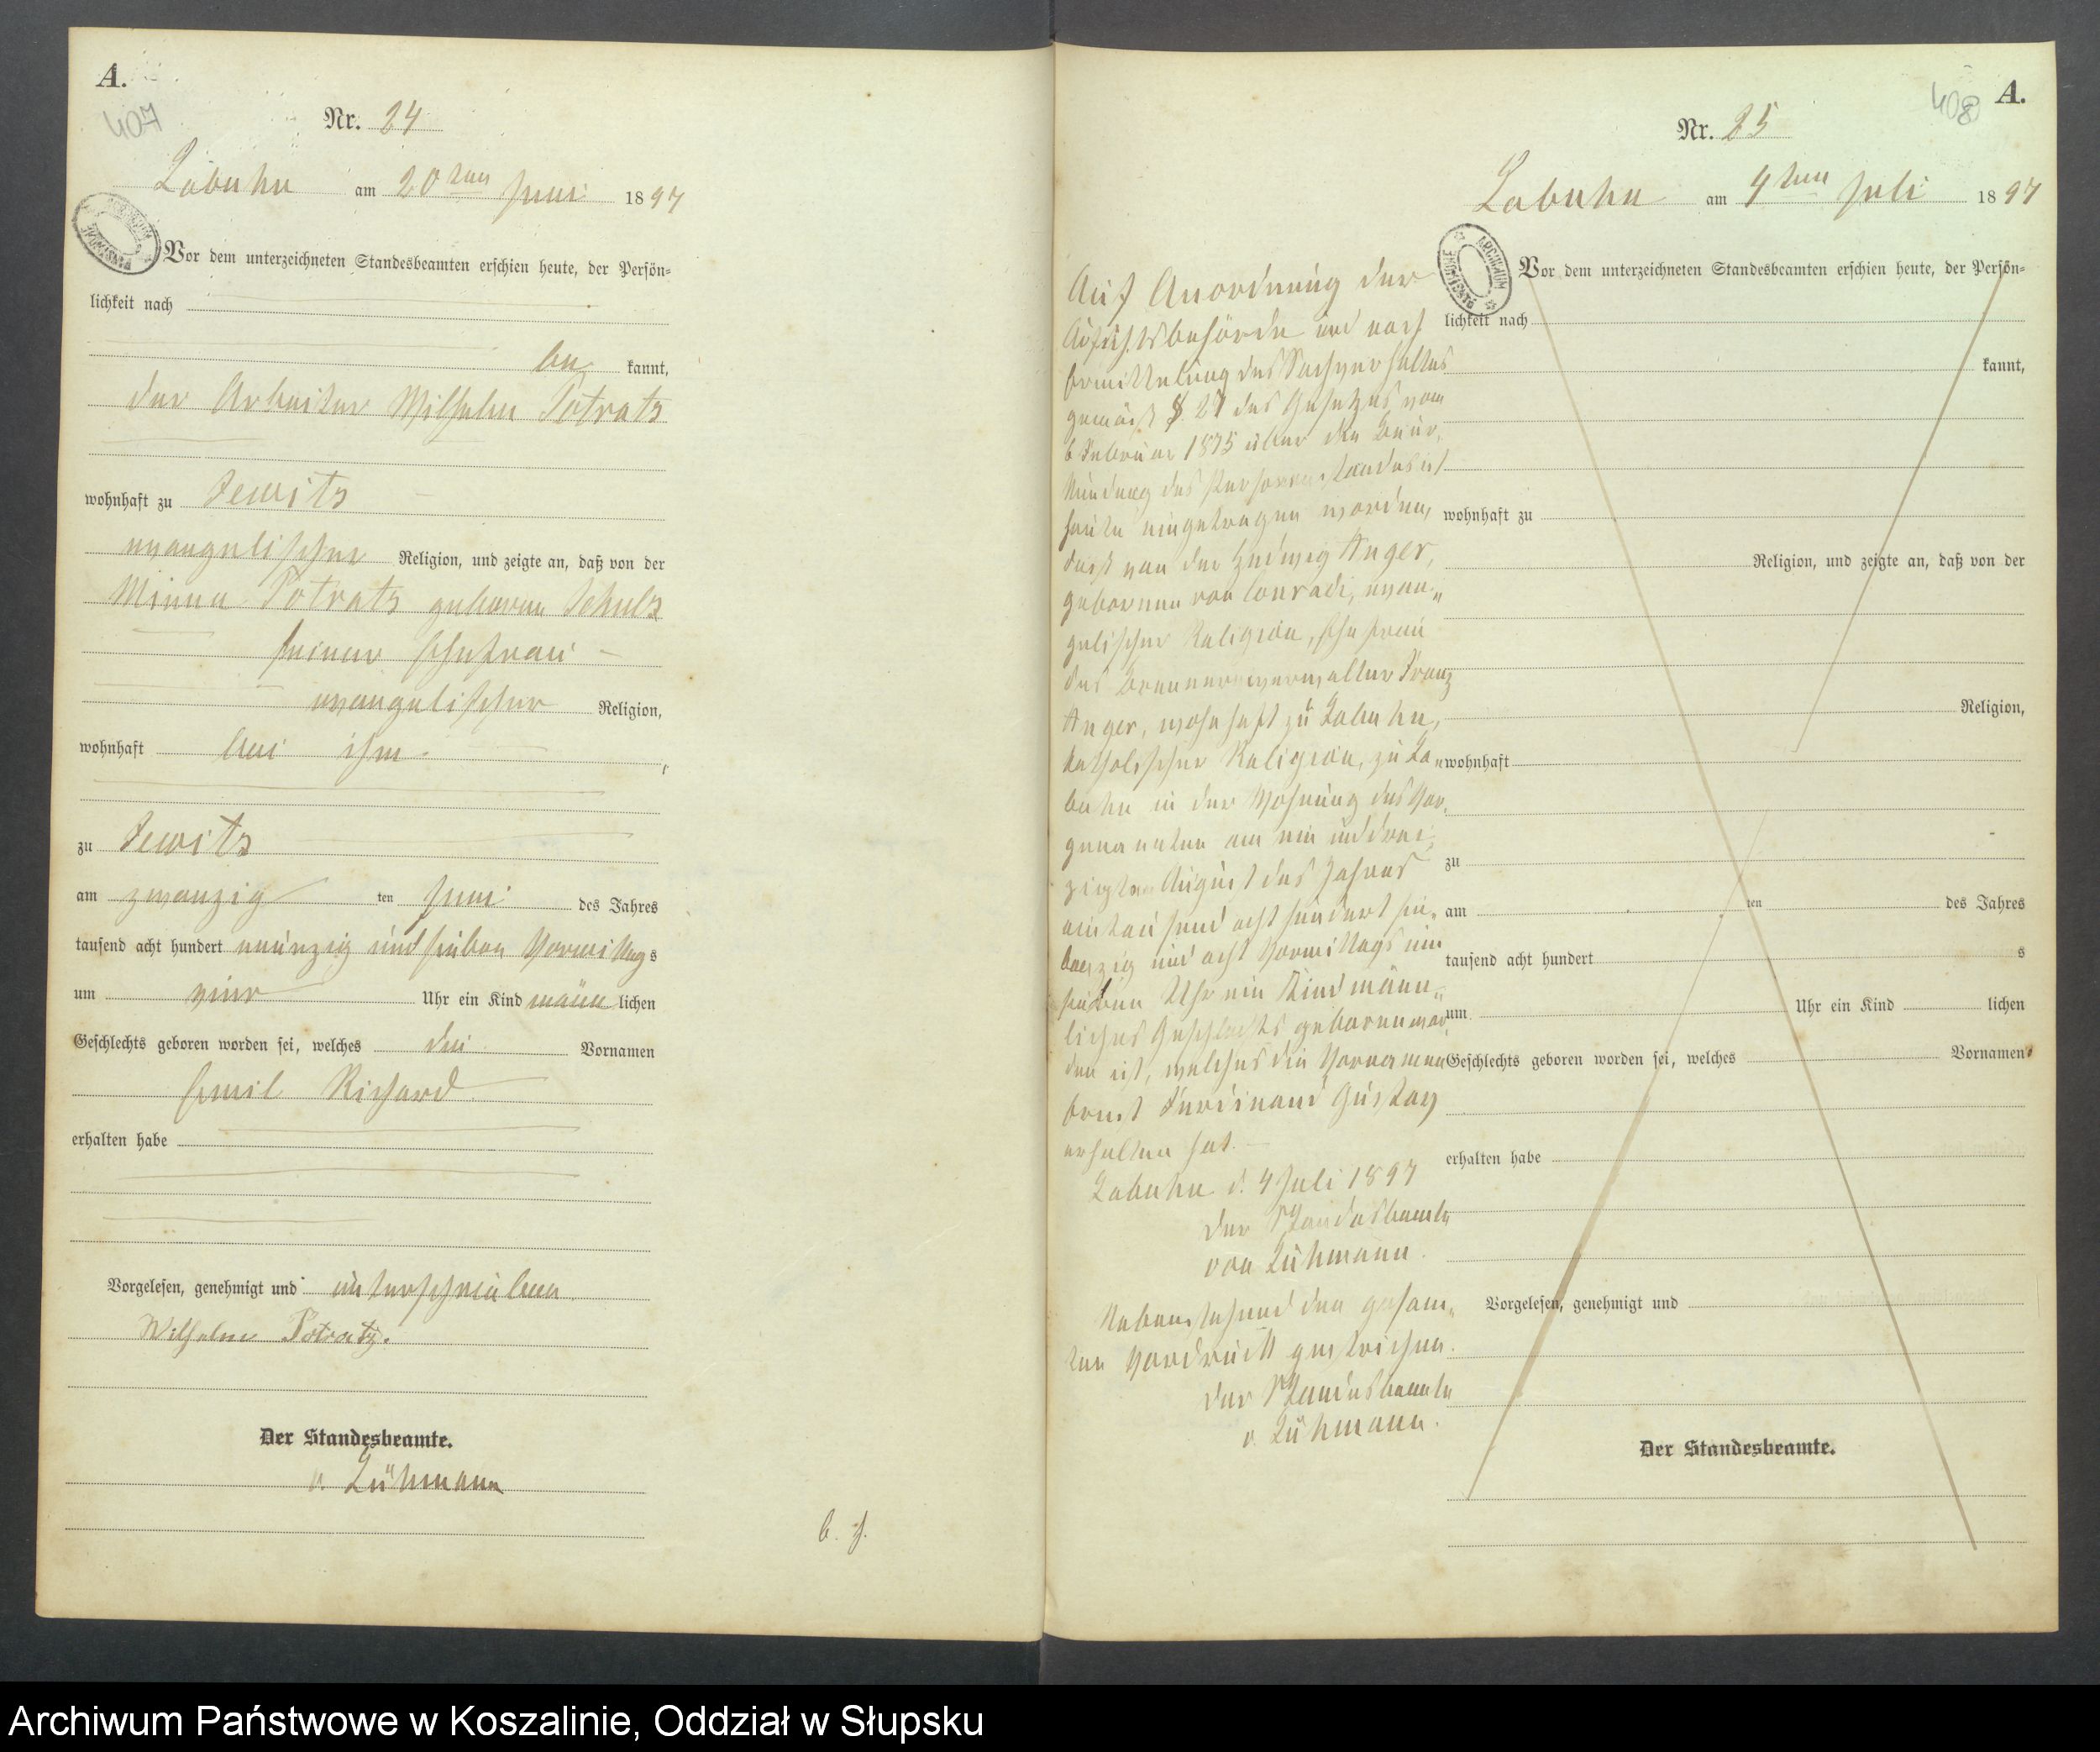 A.
407
Nr. 24
Labuhn am 20ten Juni 1897
Vor dem unterzeichneten Standesbeamten erschien heute, der Persön=
lichkeit nach
be kannt,
der Arbeiter Wilhelm Potratz
wohnhaft zu Jewitz
evangelischer Religion, und zeigte an, daß von der
Minna Potratz geboren Schulz
seiner Ehefrau
evangelischer Religion,
wohnhaft bei ihm
zu Jewitz
am zwanzig ten Juni des Jahres
tausend acht hundert neunzig und sieben Vormittag s
um vier Uhr ein Kind männ lichen
Geschlechts geboren worden sei, welches die Vornamen
Emil Richard
erhalten habe
Vorgelesen, genehmigt und unterschrieben
Wilhelm Potratz.
Der Standesbeamte.
v. Lühmann
408
A.
Nr. 25
Labuhn am 4ten Juli 1897
Auf Anordnung der
Aufsichtsbehörde und nach
Ermittelung des Sachverhaltes
gemäß § 27 des Gesetzes vom
6 Februar 1875 über die Beur,
kundung des Personenstandes ist
heute eingetragen worden,
daß von der Hedwig Anger,
geborenen von Conradi, evan„
gelischer Religion, Ehefrau
des Brennereiverwalter Franz
Anger, wohnhaft zu Labuhn,
katholischer Religion, zu La„
buhn in der Wohnung des Vor,
genannten am ein und drei,
zigsten August des Jahres
eintausend acht hundert sie„
benzig und acht Vormittags um
sieben Uhr ein Kind männ„
liches Geschlechts geboren wor,
den ist, welches die Vornamen
Ernst Ferdinand Gustav
erhalten hat.
Labuhn d. 4 Juli 1897
Der Standesbeamte
von Lühmann.
Nebenstehend den gesam„
ten Vordruck gestrichen.
Der Standesbeamte
v. Lühmann.
Vor dem unterzeichneten Standesbeamten erschien heute, der Persön=
lichkeit nach
kannt,
wohnhaft zu
Religion, und zeigte an, daß von der
Religion,
wohnhaft
zu
am ten des Jahres
tausend acht hundert s
um Uhr ein Kind lichen
Geschlechts geboren worden sei, welches Vornamen
erhalten habe
Vorgelesen, genehmigt und
Der Standesbeamte.
Archiwum Państwowe w Koszalinie, Oddział w Słupsku